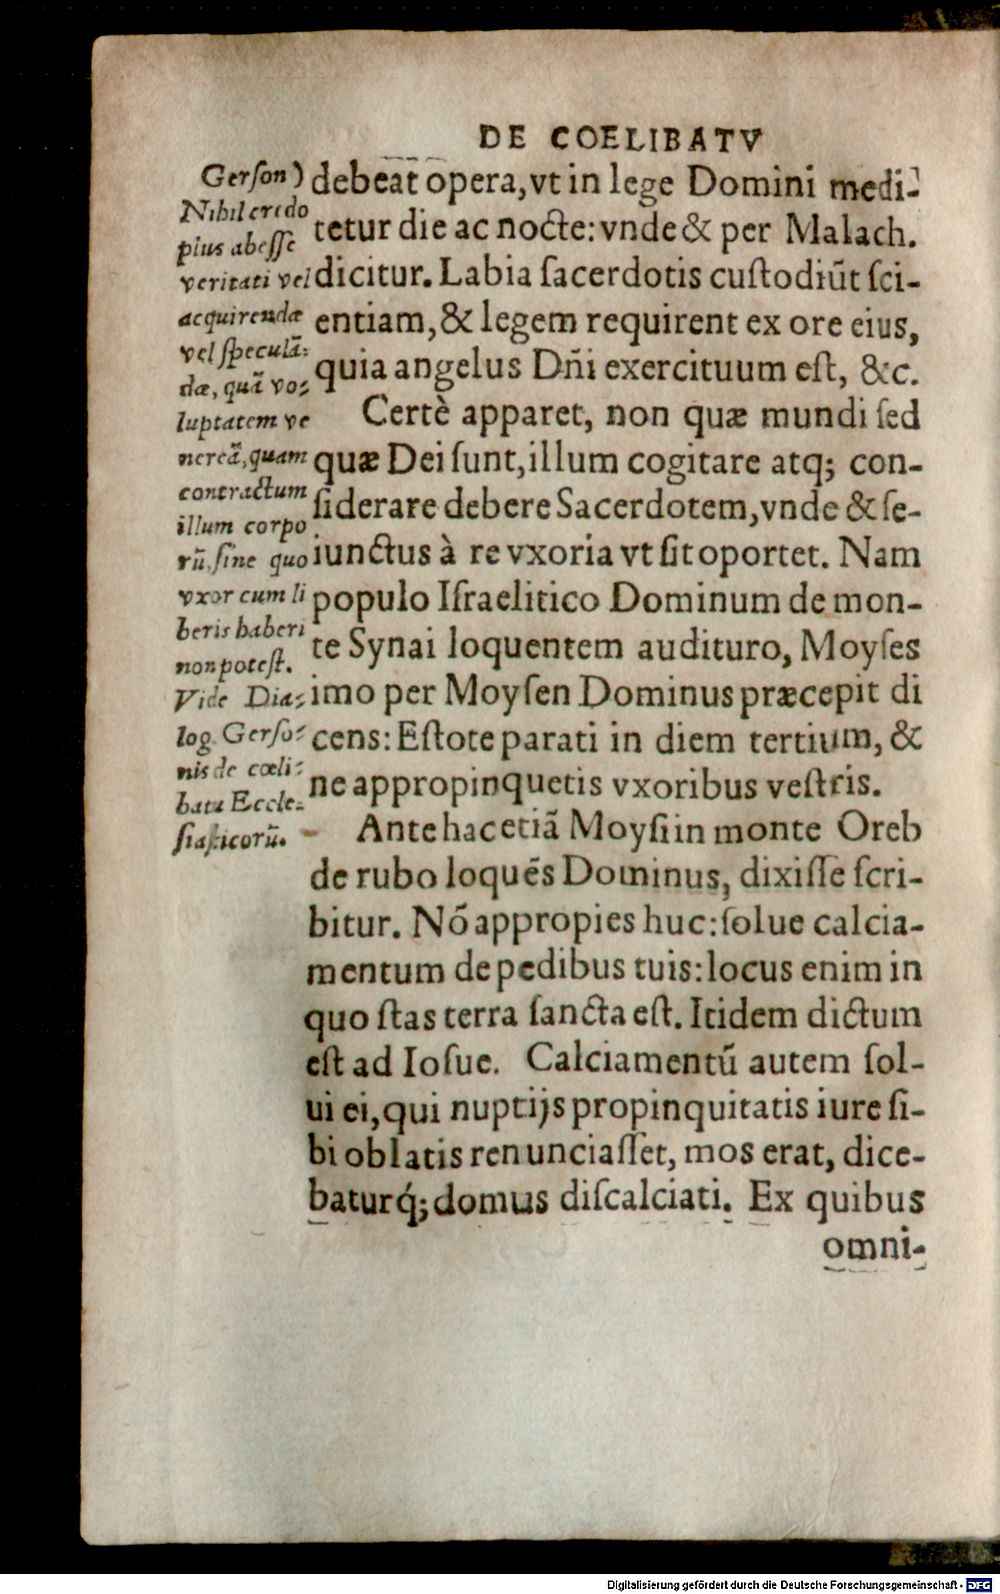 DE COELIBATV
debeat opera, vt in lege Domini medi-
tetur die ac nocte: vnde & per Malach.
dicitur. Labia ſacerdotis cuſtodiũt ſci-
entiam, & legem requirent ex ore eius,
quia angelus Dñi exercituum eſt, &c.
Certè apparet, non quæ mundi ſed
quæ Dei ſunt, illum cogitare atq; con-
ſiderare debere Sacerdotem, vnde & ſe-
iunctus à re vxoria vt ſit oportet. Nam
populo Iſraelitico Dominum de mon-
te Synai loquentem audituro, Moyſes
imo per Moyſen Dominus præcepit di
cens: Eſtote parati in diem tertium, &
ne appropinquetis vxoribus veſtris.
Ante hac etiã Moyſi in monte Oreb
de rubo loquẽs Dominus, dixiſſe ſcri-
bitur. Nõ appropies huc: ſolue calcia-
mentum de pedibus tuis: locus enim in
quo ſtas terra ſancta eſt. Itidem dictum
eſt ad Ioſue. Calciamentũ autem ſol-
ui ei, qui nuptijs propinquitatis iure ſi-
bi oblatis renunciaſſet, mos erat, dice-
baturq́; domus diſcalciati. Ex quibus
omni-
Gerſon)
Nihil credo
plus abeſſe
veritati vel
acquirendæ
vel ſpeculã-
dæ, quã vo-
luptatem ve
nereã, quam
contractum
illum corpo
rũ, ſine quo
vxor cum li
beris haberi
non poteſt.
Vide Dia-
log. Gerſo-
nis de cœli-
batu Eccle-
ſiaſticorũ.
Digitalisierung gefördert durch die Deutsche Forschungsgemeinschaft - DFG